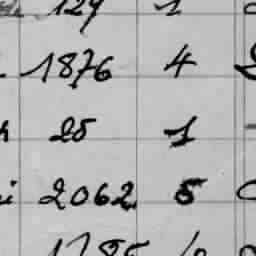 129 1
1876 4
25 1
2062 5
1785